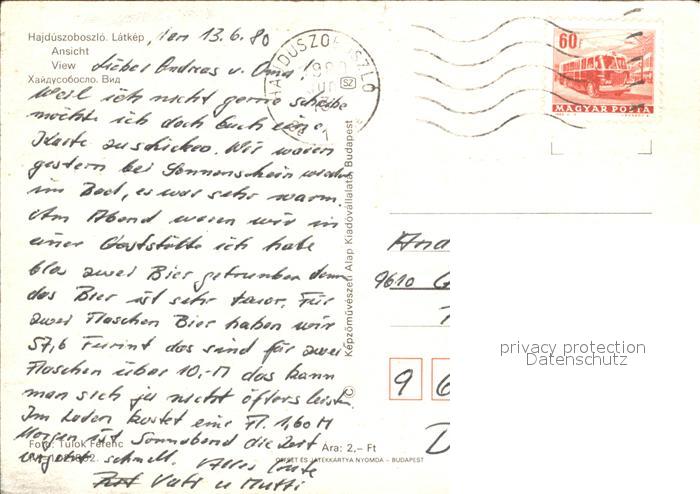 Hajdúszoboszló. Látkép
Ansicht
View
Хайдусобосло. Вид
, den 13.6.80
Lieber Andreas u. Oma!
Weil ich nicht gerne schreibe
möchte ich doch Euch eine
Karte zuschicken. Wir waren
gestern bei Sonnenschein wieder
im Bad, es war sehr warm.
Am Abend waren wir in
einer Gaststätte ich habe
blos zwei Bier getrunken denn
das Bier ist sehr teuer. Für
zwei Flaschen Bier haben wir
57,6 Furint das sind für zwei
Flaschen über 10,-M das kann
man sich ja nicht öfters leisten.
Im Laden kostet eine Fl. 1,60 M
Morgen ist Sonnabend die Zeit
vergeht schnell. Alles Gute
Vati u Mutti
Foto: Tulok Ferenc
Ára: 2,– Ft
OFFSET ÉS JÁTÉKKÁRTYA NYOMDA – BUDAPEST
© Képzőművészeti Alap Kiadóvállalata, Budapest
HAJDUSZOBOSZLÓ
SZ
1
60f
MAGYAR POSTA
And
9610 G
9 6
D
privacy protection
Datenschutz